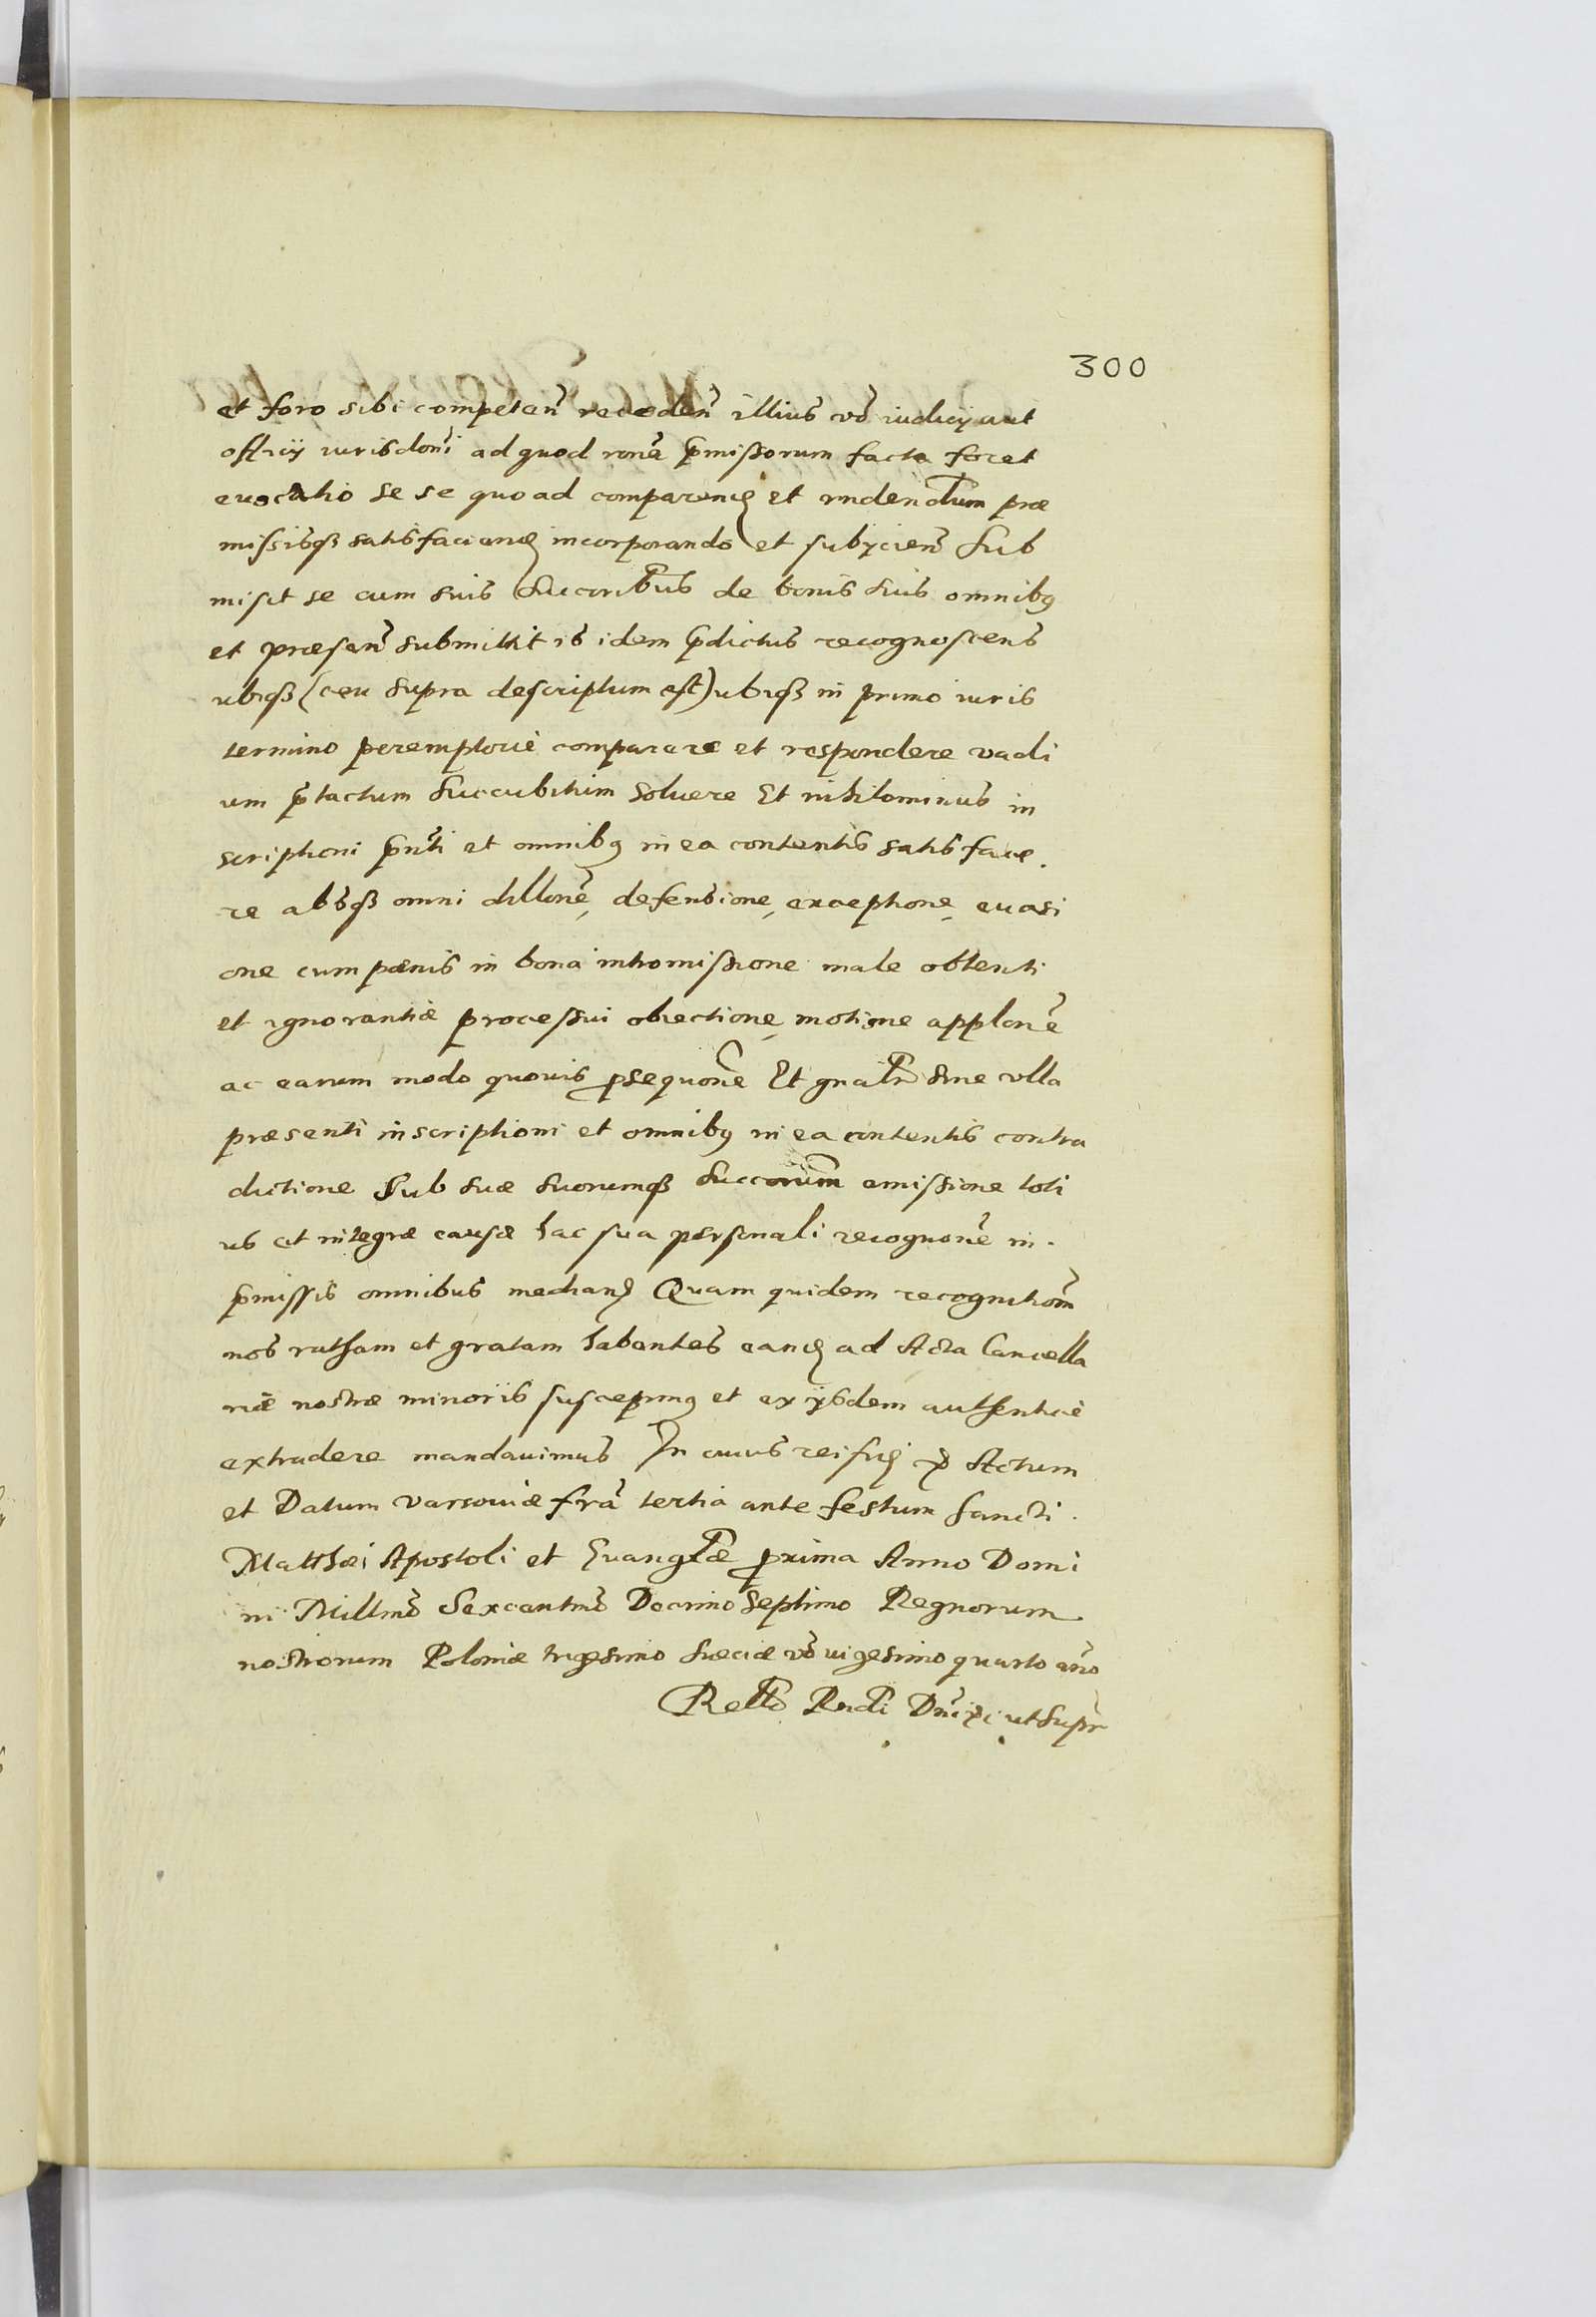 300
et foro sibi competen̄ receden̄ illius vō iudicÿ aut
officÿ iurisdonī ad quod ronē p̄missorum facta foret
euocatio se se quoad comparenḍ et rndendum præ
missisqȝ satisfacienḍ incorporando et subÿcien̄ Sub
misit se cum suis succoribus de bonis suis omnibꝯ
et præsen̄ submittit is idem p̄dictus recognoscens
ubiqȝ (ceu supra descriptum est) ubiqȝ in primo iuris
termino peremptoriè comparere et respondere vadi
um p̄tactum succubitum soluere Et nihilominus in
scriptioni pn̄ti et omnibꝯ in ea contentis satisface
re absqȝ omni dillonē, defensione, exceptione, euasi
one cum pænis in bona intromissione male obtenti
et ignorantiæ processui obiectione, motione applonē
ac earum modo quouis ꝓsequonē Et gnalr̄ sine vlla
præsenti inscriptioni et omnibꝯ in ea contentis contra
dictione Sub suæ suorumqȝ succorum̄ emissione toti
us et integræ causæ hac sua personali recognonē in
p̄missis omnibus medianḍ Quam quidem recognitionē
nos ratham et gratam habentes eanḍ ad Acta Cancella
riæ nostræ minoris suscepimꝯ et ex ÿsdem authenticè
extradere mandauimus In cuius rei fiḍ ꝛ Actum
et Datum Varsouiæ frā tertia ante festum Sancti
Matthæi Apostoli et Euanglæ ꝓxima Anno Domi
ni Millmō Sexcentmō Decimo Septimo Regnorum
nostrorum Poloniæ trigesimo Sueciæ vō uigesimo quarto an̄o
Rellō Rndi Dnī ut supr